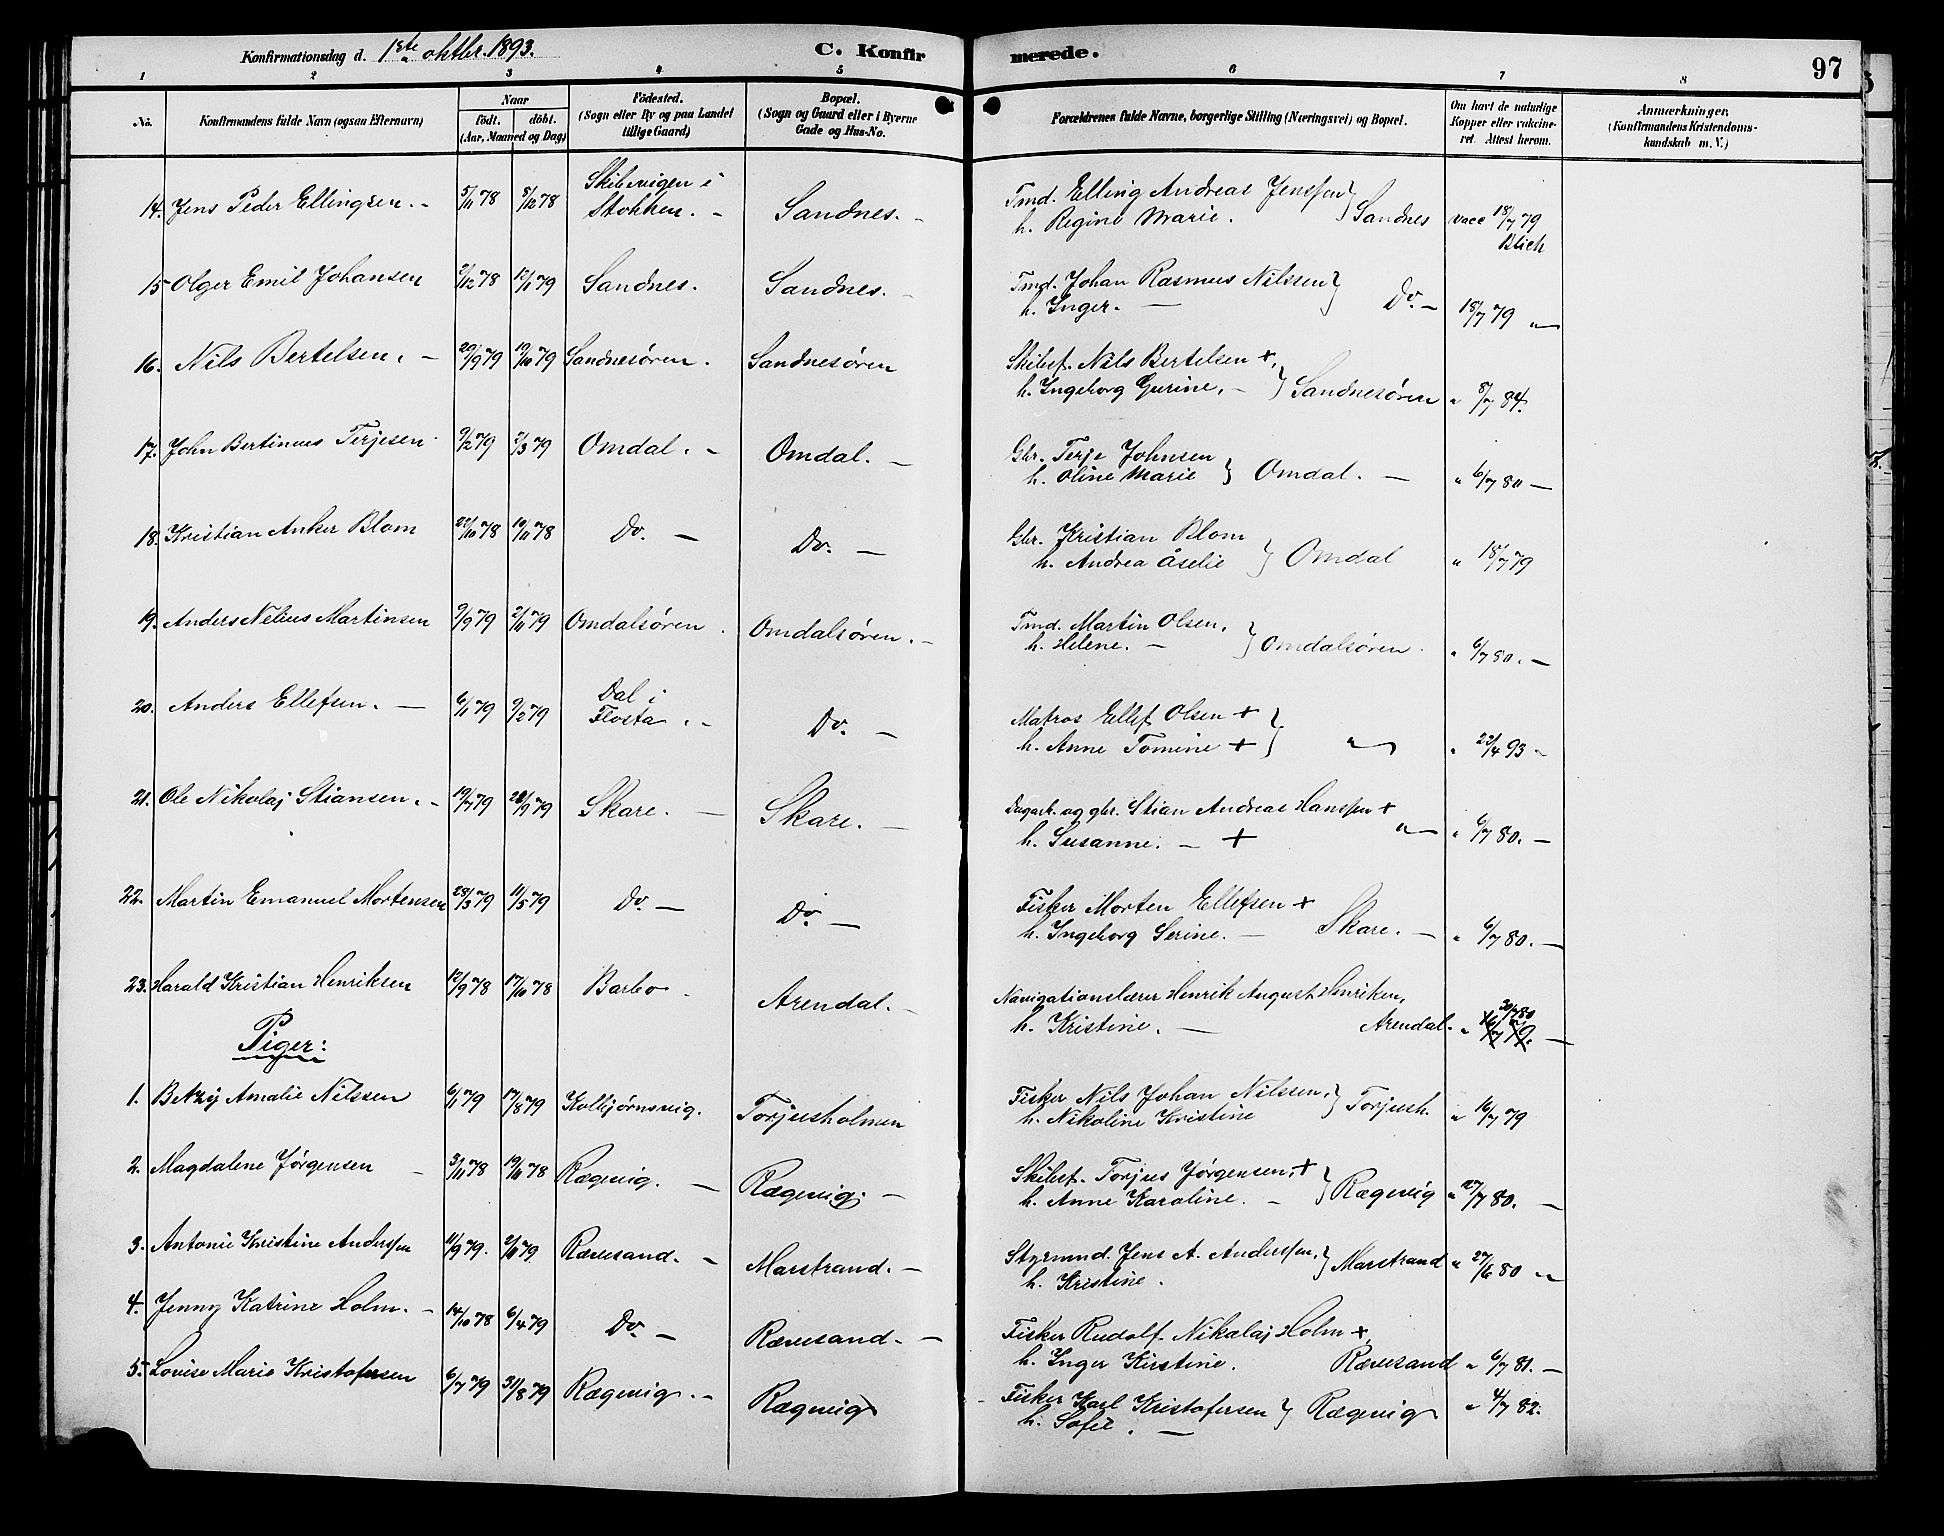 Konfirmationsdag d. 1ste oktbr. 1893. C. Konfir merede. 97
1 2 3 4 5 6 7 8
No. Konfirmandens fulde Navn (ogsaa Efternavn) Naar født. døbt. (Aar, Maaned og Dag) Fødested. (Sogn eller By og paa Landet tillige Gaard) Bopæl. (Sogn og Gaard eller i Byerne Gade og Hus-No. Forældrenes fulde Navne, borgerlige Stilling (Næringsvei) og Bopæl. Om havt de naturlige Kopper eller vakcineret Attest herom. Anmærkninger. (Konfirmandens Kristendomskundskab m. V.)
14. Jens Peder Ellingsen. - 5/11 78 8/12 78 Skibevigen i Stokken. - Sandnes. - Tmd. Elling Andreas Jenssen h. Regine Marie. } Sandnes vacc 18/7 79 Blich
15 Olger Emil Johansen 2/12 78 12/1 79 Sandnes. Sandnes. - Tmd. Johan Rasmus Nilssen h. Inger. - } Do. - 18/7 79 "
16. Nils Bertelsen. - 20/9 79 19/10 79 Sandnesøren. Sandnesøren Skibsf. Nils Bertelsen +, h. Ingeborg Gurine. - } Sandnesøren " 8/7 84.
17. John Bertinius Terjesen 9/2 79 2/3 79 Omdal. - Omdal. - Gbr. Terje Johnsen h. Oline Marie } Omdal. - " 6/7 80 -
18. Kristian Anker Blom 22/10 78 19/11 78 Do. - Do. - Gbr. Kristian Blom h. Andrea Åselie } Omdal " 18/7 79
19. Anders Nelius Martinsen 9/9 79 2/11 79 Omdalsøren. Omdalsøren. - Tmd. Martin Olsen, h. Helene. - } Omdalsøren. " 6/7 80. -
20. Anders Ellefsen. - 6/1 79 9/2 79 Dal i Flosta. - Do. - Matros Ellef Olsen + h. Anne Tomine + } " " 22/4 93 -
21. Ole Nikolaj Stiansen. - 19/7 79 28/9 79 Skare. - Skare. - Dagarb. og gbr. Stian Andreas Hanssen + h. Susanne. - + " " 6/7 80. -
22. Martin Emanuel Mortensen 28/3 79 11/5 79 Do. - Do. - Fisker Morten Ellefsen + h. Ingeborg Serine. - Skare. - " 6/7 80. -
23. Harald Kristian Henriksen 12/9 78 17/10 78 Barbo - Arendal. - Navigationslærer Henrik August Henriken, h. Kristine. - Arendal. " 30/7 80 -
Piger:
1. Betzy Amalie Nilssen 6/1 79 17/8 79 Kolbjørnsvig. Torjusholmen Fisker Nils Johan Nilssen, h. Nikoline Kristine } Torjush. " 16/7 79
2. Magdalene Jørgensen - 3/11 78 19/11 78 Rægevig. - Rægevig. - Skibsf. Torjus Jørgensen, + h. Anne Karoline. - } Rægevig " 27/7 80. -
3. Antonie Kristine Anderssen 11/9 79. 2/11 79 Rævesand. - Marstrand. - Styrmnd. Jens A. Anderssen, h. Kristine. } Marstrand " 27/6 80 "
4. Jenny Katrine Holm. - 14/10 78 6/4 79 Do. - Rævesand. - Fisker Rudolf Nikolaj Holm +, h. Inger Kirstine. Rævesand " 6/7 81. -
5. Lovise Marie Kristofersen 6/7 79 31/8 79 Rægevig. - Rægevig - Fisker Karl Kristofersen h. Sofie. - } Rægevig " 4/7 82.